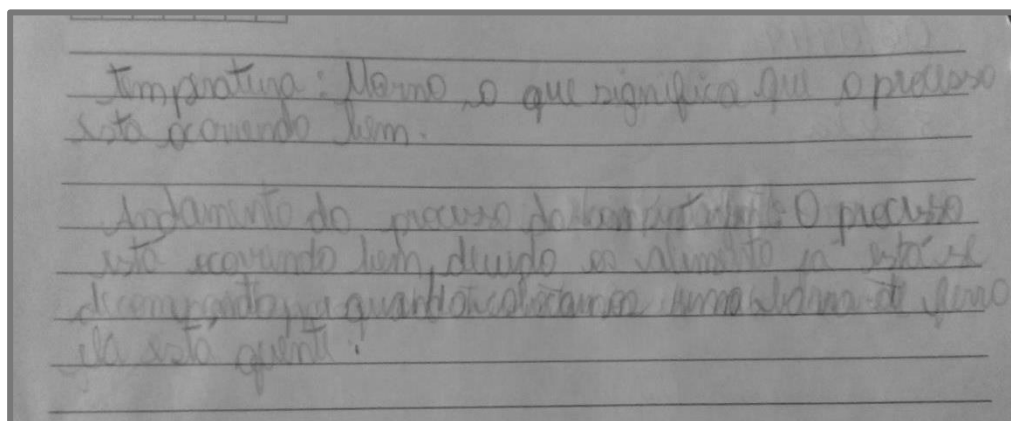 temperatura: Morno, o que significa que o processo
está ocorrendo bem.
Andamento do processo da : O processo
está ocorrendo bem, devido ao alimento já está se
decompondo, quando colocamos uma barra de ferro
ela está quente.